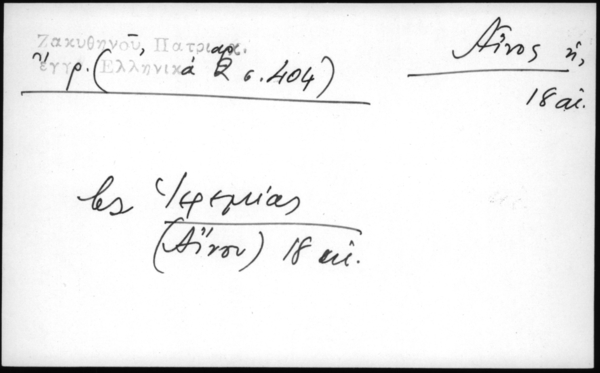 Ζακυθηνοῦ, Πατριαρχ.
ἔγγρ. Ἑλληνικ
σ. 404)
Αἶνος ἡ,
18 αἰ.
Ἱερεμίας
(Αἴνου) 18 αἰ.